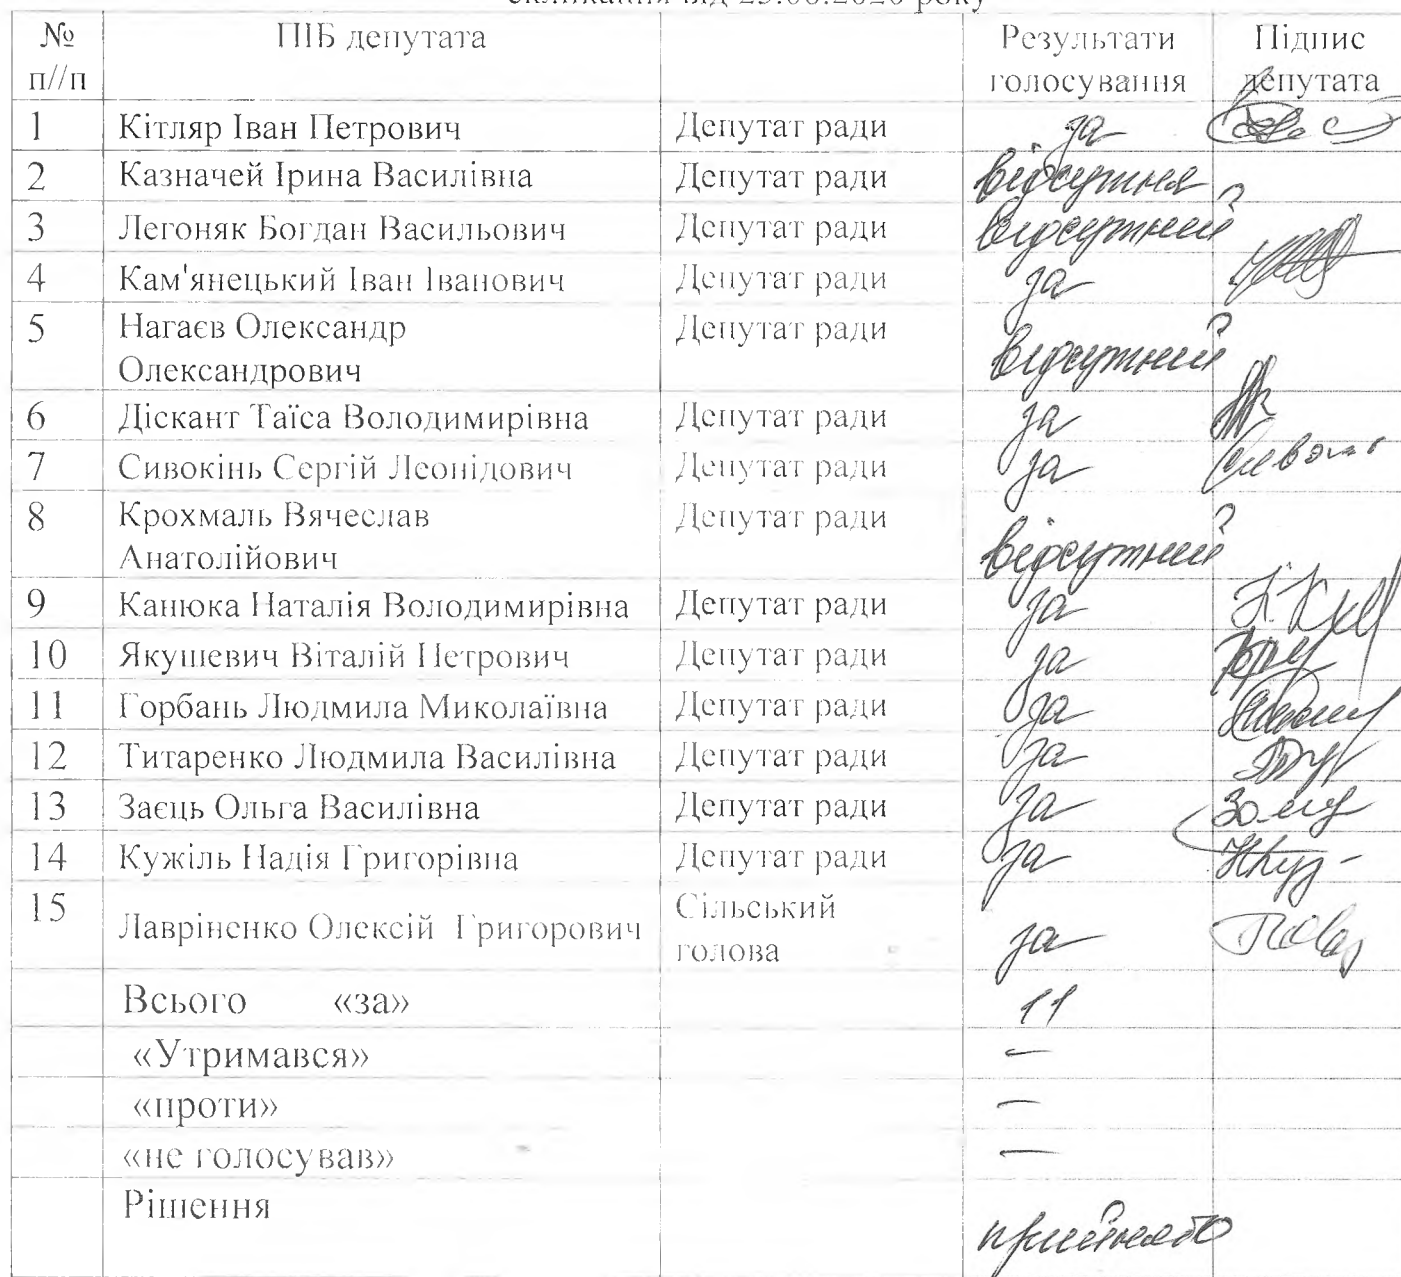 скликання від 23.06.2020 року
№ ПІБ депутата Результати Підпис
п//п голосування депутата
1 Кітляр Іван Петрович Депутат ради за
2 Казначей Ірина Василівна Депутат ради відсутня
3 Легоняк Богдан Васильович Депутат ради відсутній
4 Кам'янецький Іван Іванович Депутат ради за
5 Нагаєв Олександр Депутат ради
Олександрович відсутний
6 Діскант Таїса Володимирівна Депутат ради за
7 Сивокінь Сергій Леонідович Депутат ради за
8 Крохмаль Вячеслав Депутат ради
Анатолійович відсутний
9 Канюка Наталія Володимирівна Депутат ради за
10 Якушевич Віталій Петрович Депутат ради за
11 Горбань Людмила Миколаївна Депутат ради за
12 Титаренко Людмила Василівна Депутат ради за
13 Заєць Ольга Василівна Депутат ради за
14 Кужіль Надія Григорівна Депутат ради за
15 Сільський
Лавріненко Олексій Григорович голова за
Всього «за» 11
«Утримався» –
«проти» –
«не голосував» –
Рішення
прийнято